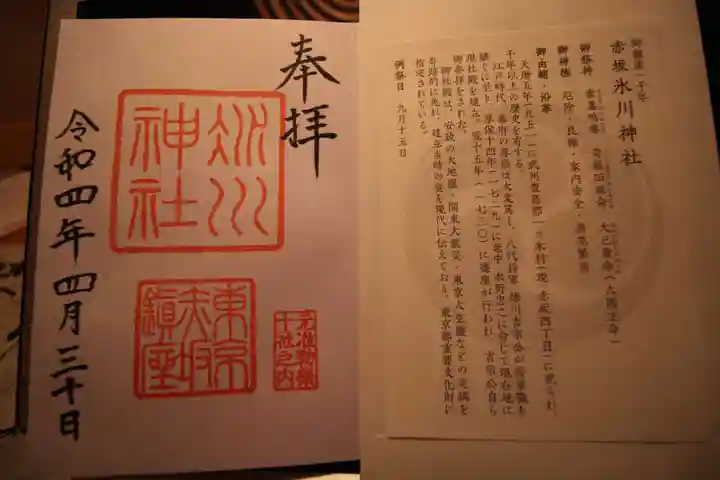 奉拝
氷川
神社
東京
赤坂
鎮座
元准勅祭
十社之内
令和四年四月三十日
御鎮座一千年
赤坂氷川神社
御祭神 素盞嗚尊 奇稲田姫命 大己貴命(大国主命)
御神徳 厄除・良縁・家内安全・商売繁昌
御由緒・沿革
天暦五年(九五一)に武州豊島郡一ツ木村(現 赤坂四丁目)に祀られ、
千年以上の歴史を有する。
江戸時代、幕府の尊崇は大変篤し、八代将軍 徳川吉宗公が将軍職を
継ぐに至り、享保十四年(一七二九)に老中 水野忠之に命じて現在地に
現社殿を建立、翌十五年(一七三〇)に遷座が行われ、吉宗公自ら
御参拝をされた。
御社殿は、安政の大地震・関東大震災・東京大空襲などの災禍を
奇跡的に免れ、建立当時の姿を現代に伝えており、東京都重要文化財に
指定されている。
例祭日 九月十五日